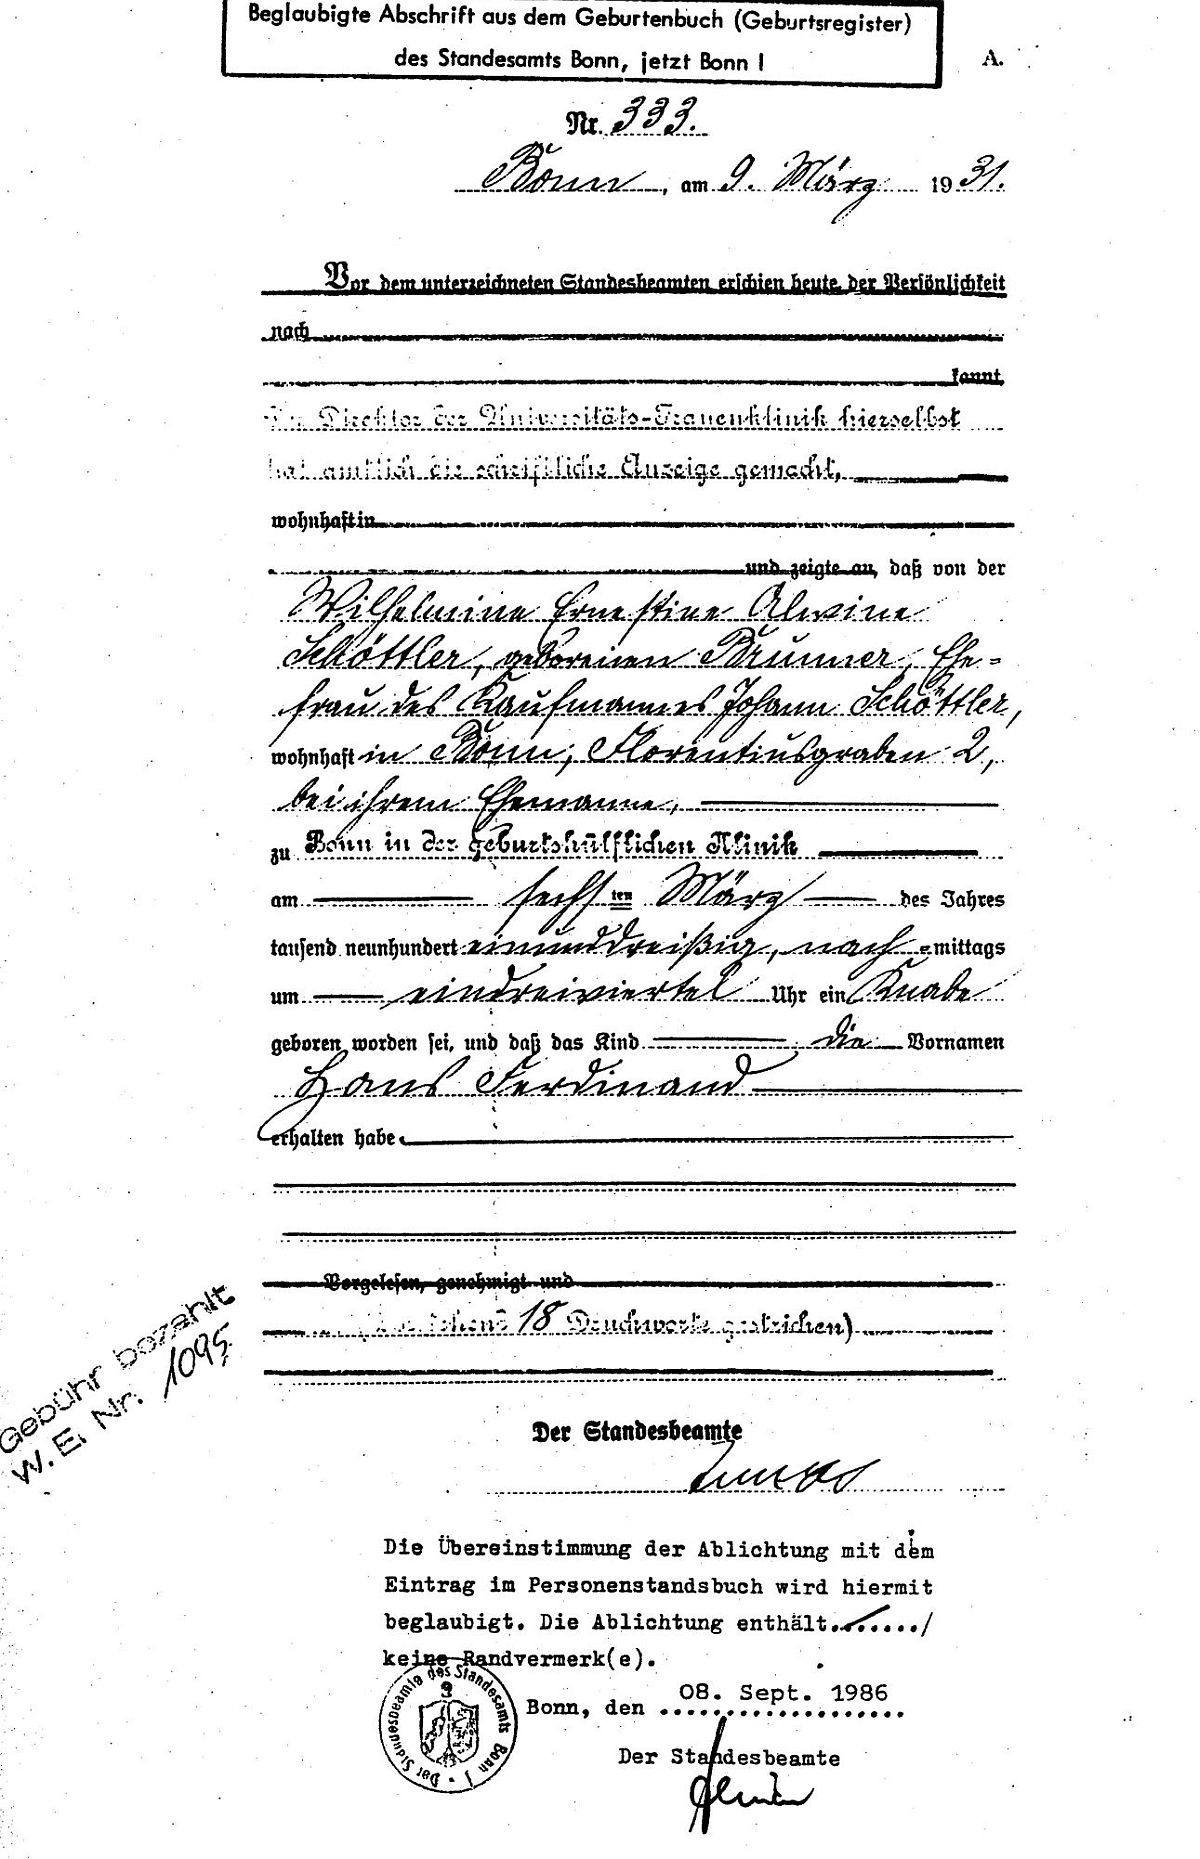 Beglaubigte Abschrift aus dem Geburtenbuch (Geburtsregister)
des Standesamts Bonn, jetzt Bonn I
A.
Nr. 333.
Bonn, am 9. März 1931.
Vor dem unterzeichneten Standesbeamten erschien heute, der Persönlichkeit
nach
kannt,
Der Direktor der Universitäts-Frauenklinik hierselbst
hat amtlich die schriftliche Anzeige gemacht,
wohnhaft in
und zeigte an, daß von der
Wilhelmine Ernestine Alwine
Schöttler, geborenen Brunner, Ehe=
frau des Kaufmannes Johann Schöttler,
wohnhaft in Bonn, Florentiusgraben 2,
bei ihrem Ehemanne,
zu Bonn in der geburtshülflichen Klinik
am sechsten März des Jahres
tausend neunhundert einunddreißig, nach=mittags
um eindreiviertel Uhr ein Knabe
geboren worden sei, und daß das Kind die Vornamen
Hans Ferdinand
erhalten habe.
Vorgelesen, genehmigt und
18 Druckworte gestrichen)
Gebühr bezahlt
W. E. Nr. 1095
Der Standesbeamte
Die Übereinstimmung der Ablichtung mit dem
Eintrag im Personenstandsbuch wird hiermit
beglaubigt. Die Ablichtung enthält......../
keine Randvermerk(e).
Bonn, den 08. Sept. 1986
Der Standesbeamte
Der Standesbeamte des Standesamts Bonn I